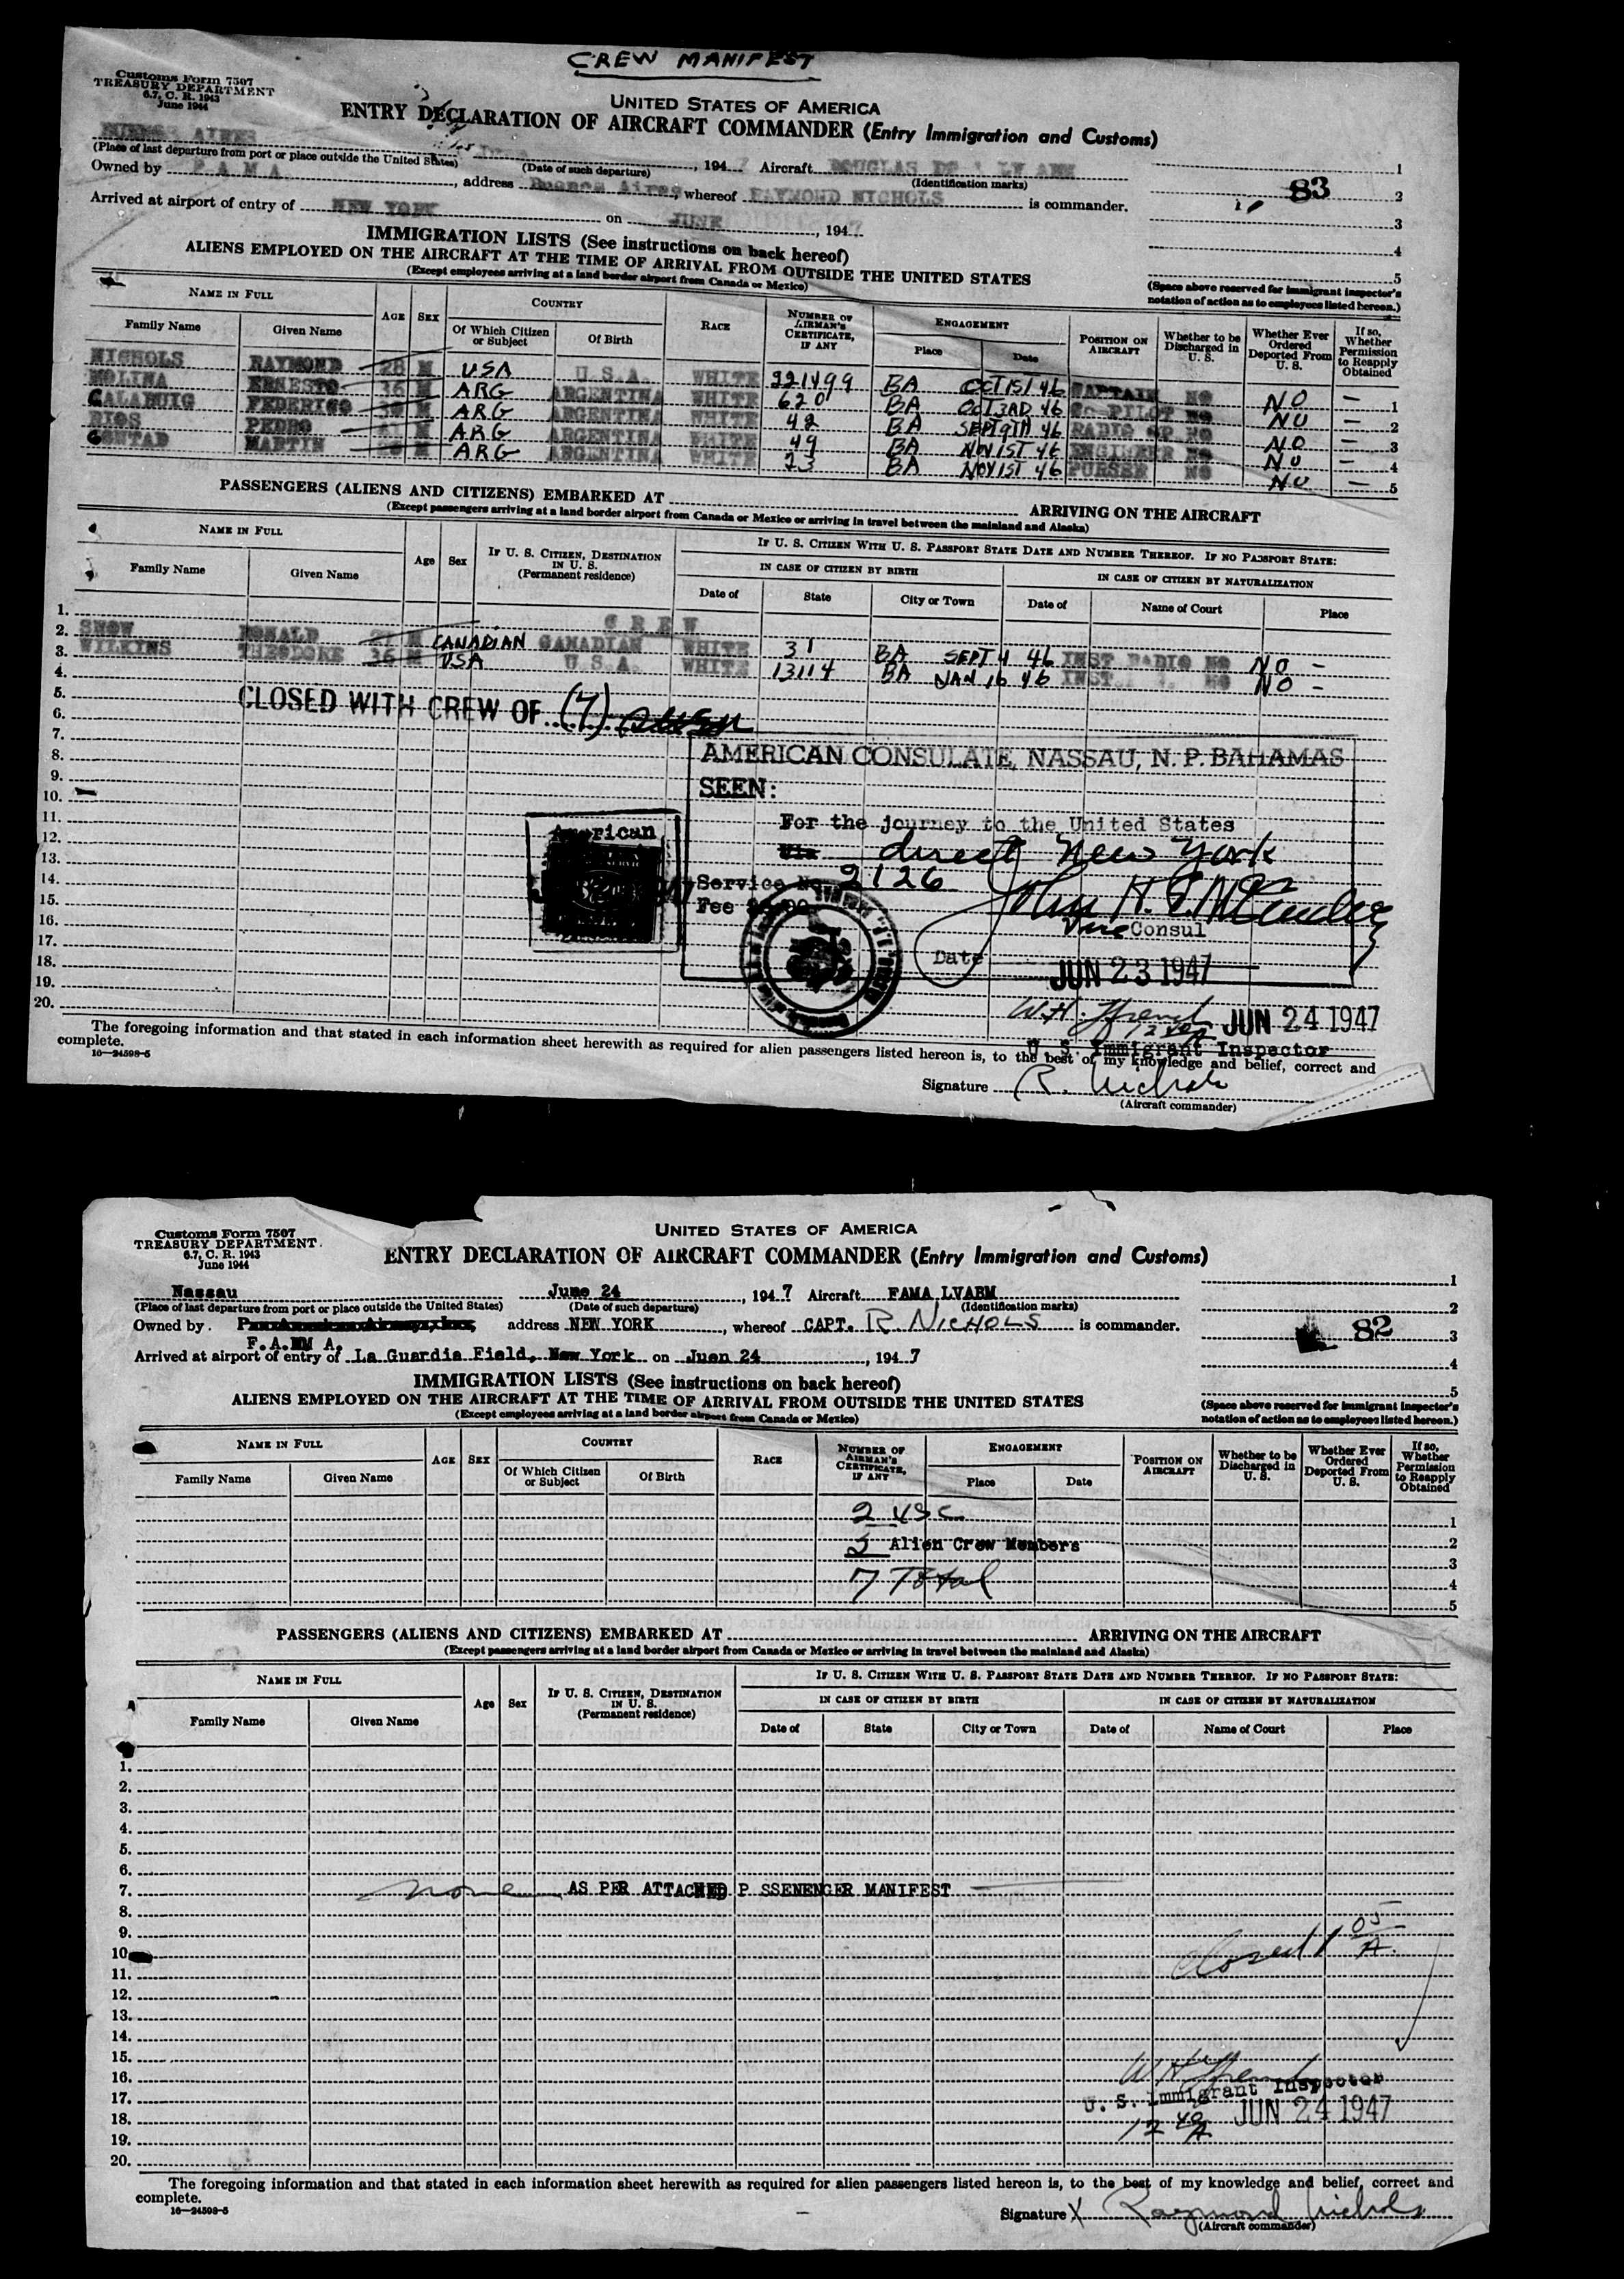 CREW MANIFEST
Customs Form 7507
TREASURY DEPARTMENT
6.7, C. R. 1943
June 1944
UNITED STATES OF AMERICA
ENTRY DECLARATION OF AIRCRAFT COMMANDER (Entry Immigration and Customs)
BUENOS AIRES , 1947 Aircraft DOUGLAS 1
(Place of last departure from port or place outside the United States) (Date of such departure) (Identification marks)
Owned by F A M A , address Buenos Aires, whereof RAYMOND NICHOLS is commander. 83 2
Arrived at airport of entry of NEW YORK on JUNE , 1947 3
IMMIGRATION LISTS (See instructions on back hereof) 4
ALIENS EMPLOYED ON THE AIRCRAFT AT THE TIME OF ARRIVAL FROM OUTSIDE THE UNITED STATES 5
(Except employees arriving at a land border airport from Canada or Mexico) (Space above reserved for immigrant inspector's notation of action as to employees listed hereon.)
NAME IN FULL AGE SEX COUNTRY RACE NUMBER OF AIRMAN'S CERTIFICATE, IF ANY ENGAGEMENT POSITION ON AIRCRAFT Whether to be Discharged in U. S. Whether Ever Ordered Deported From U. S. If so, Whether Permission to Reapply Obtained
Family Name Given Name Of Which Citizen or Subject Of Birth Place Date
NICHOLS RAYMOND 28 M USA U.S.A. WHITE 221499 BA OCT 1ST 46 CAPTAIN NO NO — 1
MOLINA ERNESTO 36 M ARG ARGENTINA WHITE 620 BA OCT 3RD 46 CO PILOT NO NO — 2
CALABUIG FEDERICO M ARG ARGENTINA WHITE 42 BA SEPT 9TH 46 RADIO OP NO NO — 3
RIOS PEDRO M ARG ARGENTINA WHITE 49 BA NOV 1ST 46 ENGINEER NO NO — 4
MARTIN M ARG ARGENTINA WHITE 23 BA NOV 1ST 46 PURSER NO NO — 5
PASSENGERS (ALIENS AND CITIZENS) EMBARKED AT ARRIVING ON THE AIRCRAFT
(Except passengers arriving at a land border airport from Canada or Mexico or arriving in travel between the mainland and Alaska)
NAME IN FULL Age Sex IF U. S. CITIZEN, DESTINATION IN U. S. (Permanent residence) IF U. S. CITIZEN WITH U. S. PASSPORT STATE DATE AND NUMBER THEREOF. IF NO PASSPORT STATE:
IN CASE OF CITIZEN BY BIRTH IN CASE OF CITIZEN BY NATURALIZATION
Family Name Given Name Date of State City or Town Date of Name of Court Place
1. CREW
2. SNOW RONALD 27 M CANADIAN CANADIAN WHITE 31 BA SEPT 4 46 INST RADIO NO NO –
3. WILKINS THEODORE 36 M USA U.S.A. WHITE 13114 BA JAN 16 46 INST. NO NO –
4.
5.
6. CLOSED WITH CREW OF (7)
7.
8. AMERICAN CONSULATE, NASSAU, N. P. BAHAMAS
9. SEEN:
10.
11. American For the journey to the United States
12. Via direct New York
13.
14. Service No. 2126
15. Fee
16. Vice Consul
17. Date
18. JUN 23 1947
19.
20. JUN 24 1947
U. S. Immigrant Inspector
The foregoing information and that stated in each information sheet herewith as required for alien passengers listed hereon is, to the best of my knowledge and belief, correct and
complete.
16—24598-5
Signature R. Nichols
(Aircraft commander)
Customs Form 7507
TREASURY DEPARTMENT
6.7, C. R. 1943
June 1944
UNITED STATES OF AMERICA
ENTRY DECLARATION OF AIRCRAFT COMMANDER (Entry Immigration and Customs)
Nassau June 24 , 1947 Aircraft FAMA LVABM 1
(Place of last departure from port or place outside the United States) (Date of such departure) (Identification marks) 2
Owned by Pan American Airways, Inc, address NEW YORK , whereof CAPT. R NICHOLS is commander. 82 3
F.A.MM A.
Arrived at airport of entry of La Guardia Field, New York on Juen 24 , 1947 4
IMMIGRATION LISTS (See instructions on back hereof) 5
ALIENS EMPLOYED ON THE AIRCRAFT AT THE TIME OF ARRIVAL FROM OUTSIDE THE UNITED STATES
(Except employees arriving at a land border airport from Canada or Mexico) (Space above reserved for immigrant inspector's notation of action as to employees listed hereon.)
NAME IN FULL AGE SEX COUNTRY RACE NUMBER OF AIRMAN'S CERTIFICATE, IF ANY ENGAGEMENT POSITION ON AIRCRAFT Whether to be Discharged in U. S. Whether Ever Ordered Deported From U. S. If so, Whether Permission to Reapply Obtained
Family Name Given Name Of Which Citizen or Subject Of Birth Place Date
2 USC 1
5 Alien Crew Members 2
3
7 Total 4
5
PASSENGERS (ALIENS AND CITIZENS) EMBARKED AT ARRIVING ON THE AIRCRAFT
(Except passengers arriving at a land border airport from Canada or Mexico or arriving in travel between the mainland and Alaska)
NAME IN FULL Age Sex IF U. S. CITIZEN, DESTINATION IN U. S. (Permanent residence) IF U. S. CITIZEN WITH U. S. PASSPORT STATE DATE AND NUMBER THEREOF. IF NO PASSPORT STATE:
IN CASE OF CITIZEN BY BIRTH IN CASE OF CITIZEN BY NATURALIZATION
Family Name Given Name Date of State City or Town Date of Name of Court Place
1.
2.
3.
4.
5.
6.
7. none AS PER ATTACHED P SSENENGER MANIFEST
8.
9. Closed 1 05 A.
10.
11.
12.
13.
14.
15.
16.
17. U. S. Immigrant Inspector
18. 12 40 A JUN 24 1947
19.
20.
The foregoing information and that stated in each information sheet herewith as required for alien passengers listed hereon is, to the best of my knowledge and belief, correct and
complete.
16—24598-5
Signature X Raymond Nichols
(Aircraft commander)